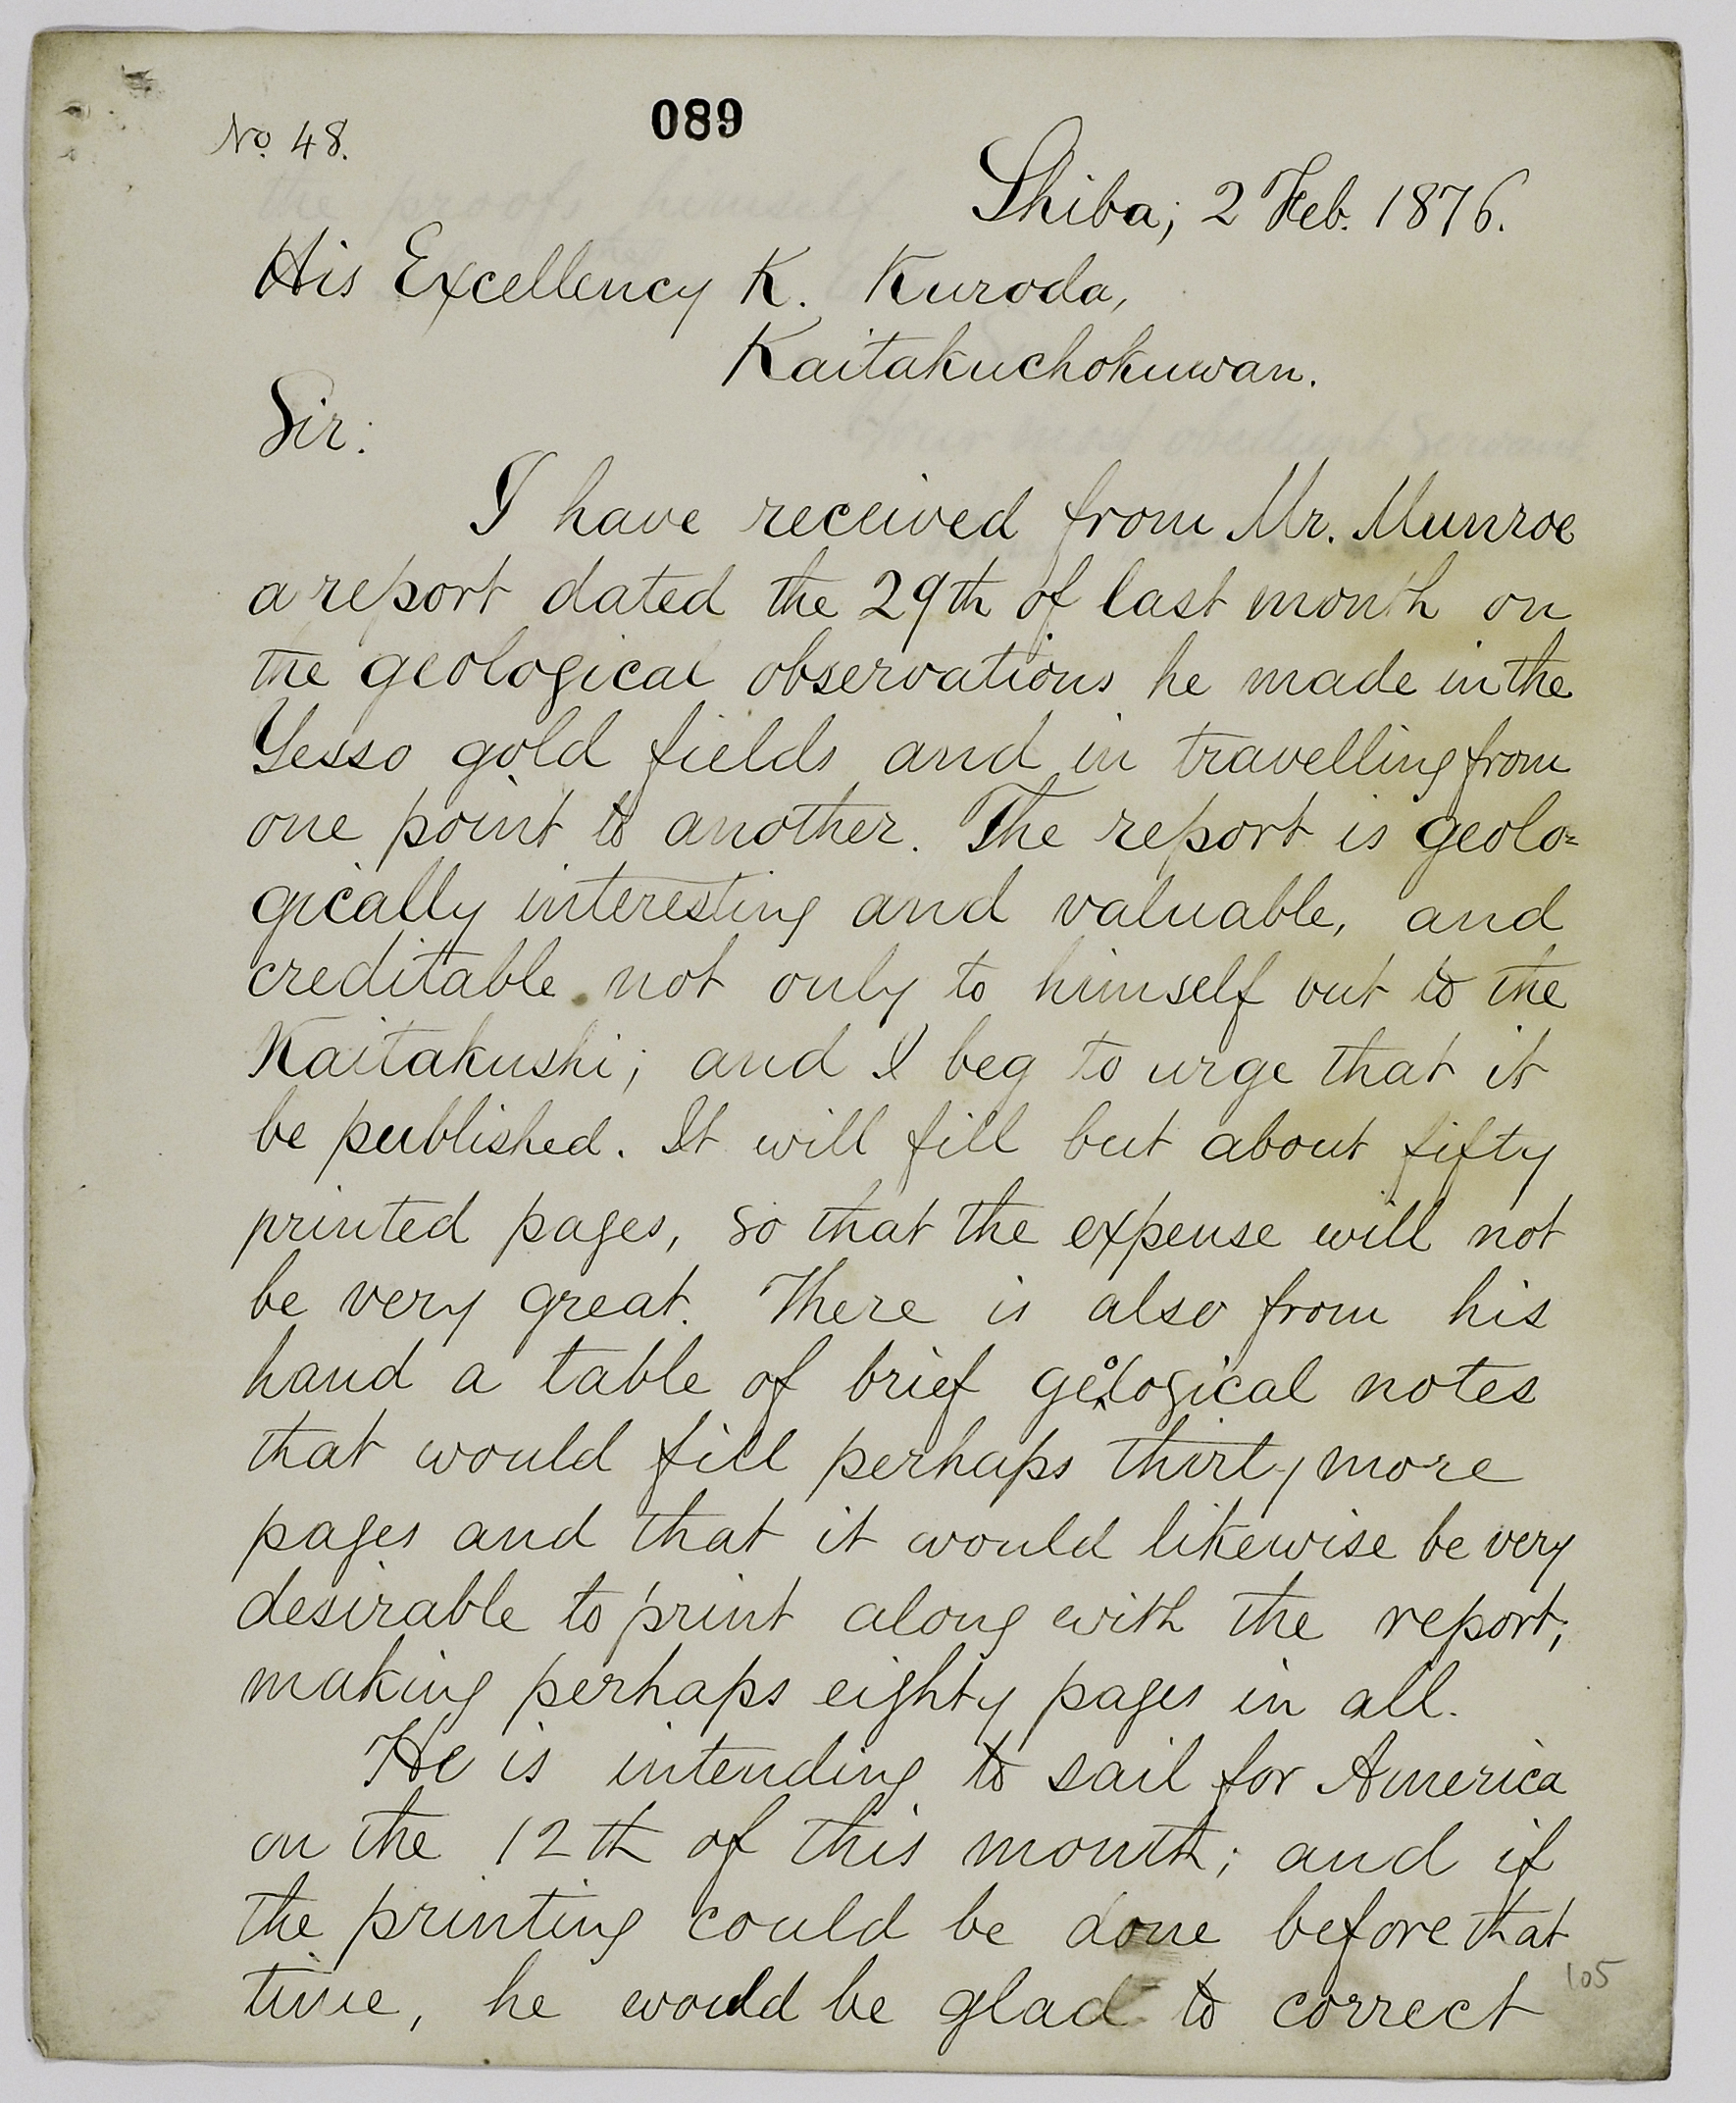 No. 48.
089
Shiba; 2 Feb. 1876.
His Excellency K. Kuroda,
Kaitakuchokuwan.
Sir:
I have received from Mr. Munroe
a report dated the 29th of last month on
the geological observations he made in the
Yesso gold fields and in travelling from
one point to another. The report is geolo=
gically interesting and valuable, and
creditable not only to himself but to the
Kaitakushi; and I beg to urge that it
be published. It will fill but about fifty
printed pages, so that the expense will not
be very great. There is also from his
hand a table of brief geological notes
that would fill perhaps thirty more
pages and that it would likewise be very
desirable to print along with the report;
making perhaps eighty pages in all.
He is intending to sail for America
on the 12th of this month; and if
the printing could be done before that
time, he would be glad to correct
105